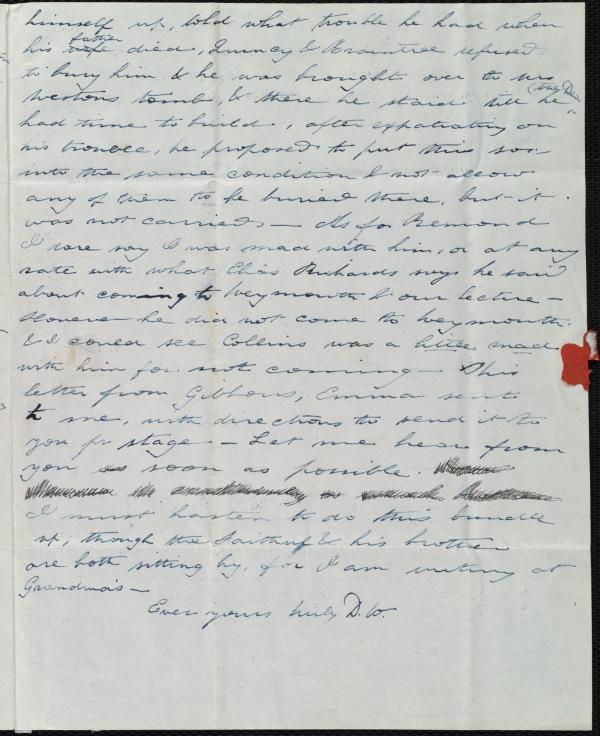 himself up, told what trouble he had when
his father died, Quincy & Braintree refused
to bury him & he was brought over to Mrs
Westons tomb, & there he staid till he
had time to build, after expatiating on
his trouble, he proposed to put this soc-
into the same condition & not allow
any of them to be buried there, but it
was not carried — As for Remond
I dare say I was mad with him, or at any
rate with what Elias Richards says he said
about coming to Weymouth & our lecture —
However he did not come to Weymouth
& I could see Collins was a little mad
with him for not coming — This
letter from Gibbons, Emma sent
to me, with directions to send it to
you pr stage — Let me hear from
you as soon as possible.
I must hasten to do this bundle
up, though the Faithful & his brother
are both sitting by, for I am writing at
Grandma's —
Ever yours truly D. W.